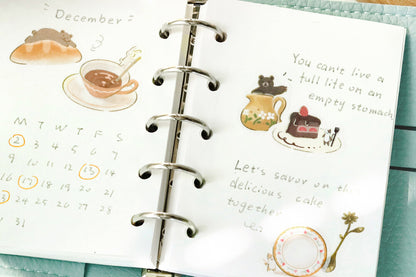 December
M T W T F S
2 3 4 5 6 7
9 10 11 12 13 14
16 17 18 19 20 21
24 25 26 27 28
31
You can't live a
full life on an
empty stomach
Let's savor on the
delicious cake
together